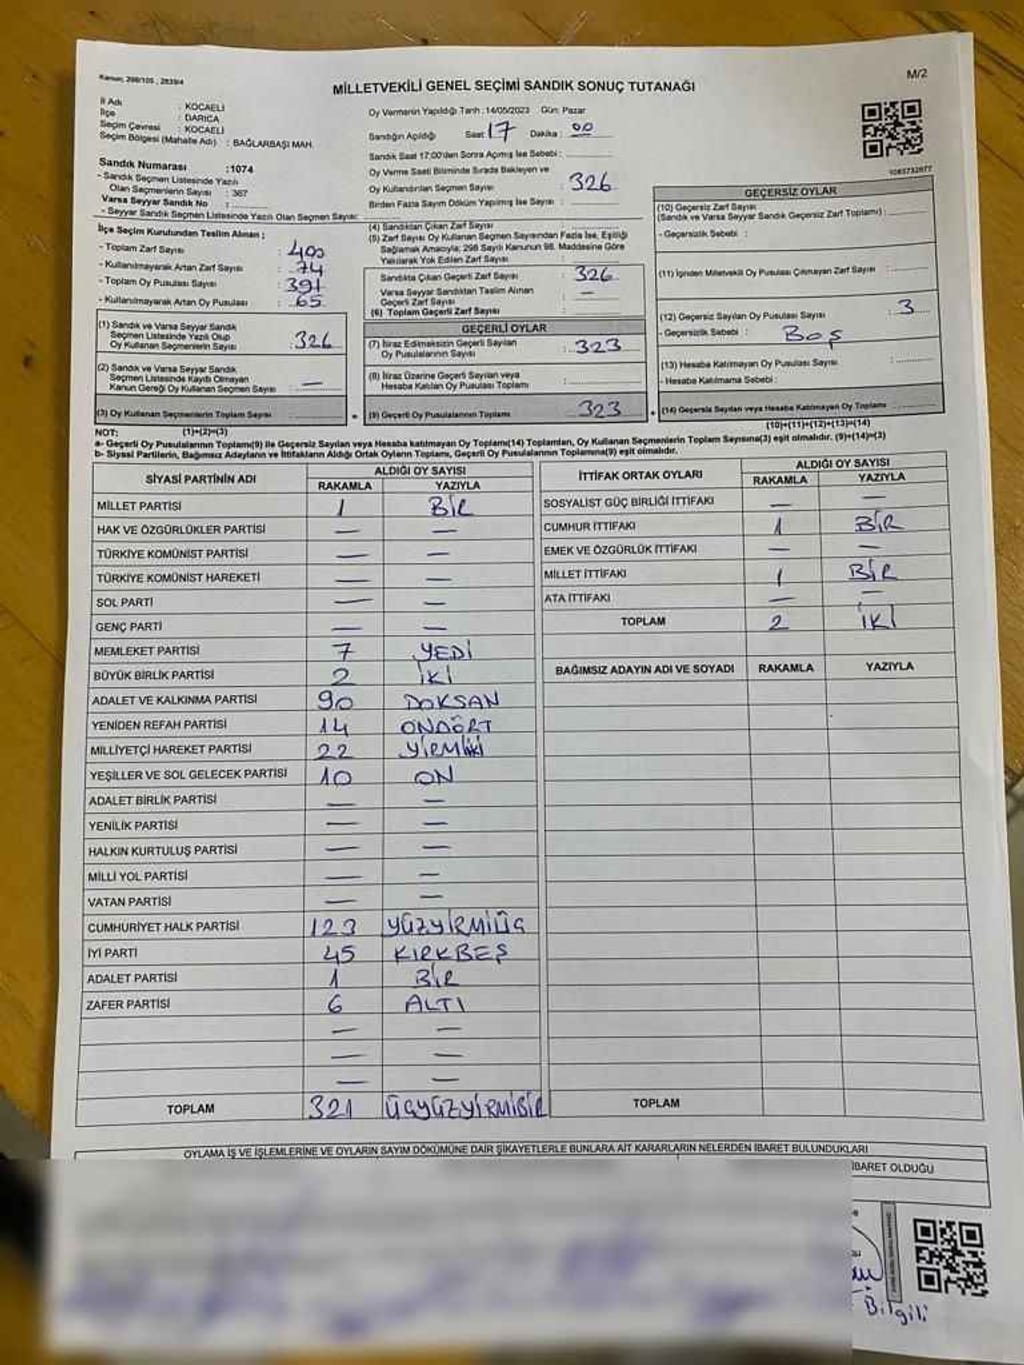 Kanun; 298/105 , 2839/4
M/2
MİLLETVEKİLİ GENEL SEÇİMİ SANDIK SONUÇ TUTANAĞI
İl Adı : KOCAELİ
İlçe : DARICA
Seçim Çevresi : KOCAELİ
Seçim Bölgesi (Mahalle Adı) : BAĞLARBAŞI MAH.
Sandık Numarası :1074
- Sandık Seçmen Listesinde Yazılı
Olan Seçmenlerin Sayısı : 387
Varsa Seyyar Sandık No :
- Seyyar Sandık Seçmen Listesinde Yazılı Olan Seçmen Sayısı:
İlçe Seçim Kurulundan Teslim Alınan ;
- Toplam Zarf Sayısı : 400
- Kullanılmayarak Artan Zarf Sayısı : 74
- Toplam Oy Pusulası Sayısı : 391
- Kullanılmayarak Artan Oy Pusulası : 65
(1) Sandık ve Varsa Seyyar Sandık
Seçmen Listesinde Yazılı Olup
Oy Kullanan Seçmenlerin Sayısı : 326
(2) Sandık ve Varsa Seyyar Sandık
Seçmen Listesinde Kayıtlı Olmayan
Kanun Gereği Oy Kullanan Seçmen Sayısı : —
(3) Oy Kullanan Seçmenlerin Toplam Sayısı :
(1)+(2)=(3)
Oy Vermenin Yapıldığı Tarih :14/05/2023 Gün: Pazar
Sandığın Açıldığı Saat : 17 Dakika : 00
Sandık Saat 17:00'den Sonra Açılmış İse Sebebi :
Oy Verme Saati Bitiminde Sırada Bekleyen ve
Oy Kullandırılan Seçmen Sayısı : 326
Birden Fazla Sayım Döküm Yapılmış İse Sayısı :
(4) Sandıktan Çıkan Zarf Sayısı :
(5) Zarf Sayısı Oy Kullanan Seçmen Sayısından Fazla İse, Eşitliği
Sağlamak Amacıyla; 298 Sayılı Kanunun 98. Maddesine Göre
Yakılarak Yok Edilen Zarf Sayısı :
Sandıkta Çıkan Geçerli Zarf Sayısı : 326
Varsa Seyyar Sandıktan Teslim Alınan
Geçerli Zarf Sayısı : —
(6) Toplam Geçerli Zarf Sayısı :
GEÇERLİ OYLAR
(7) İtiraz Edilmeksizin Geçerli Sayılan
Oy Pusulasının Sayısı : 323
(8) İtiraz Üzerine Geçerli Sayılan veya
Hesaba Katılan Oy Pusulası Toplamı :
(9) Geçerli Oy Pusulalarının Toplamı : 323
1083732877
GEÇERSİZ OYLAR
(10) Geçersiz Zarf Sayısı
(Sandık ve Varsa Seyyar Sandık Geçersiz Zarf Toplamı) :
- Geçersizlik Sebebi :
(11) İçinden Milletvekili Oy Pusulası Çıkmayan Zarf Sayısı :
(12) Geçersiz Sayılan Oy Pusulası Sayısı : 3
- Geçersizlik Sebebi : Boş
(13) Hesaba Katılmayan Oy Pusulası Sayısı :
- Hesaba Katılmama Sebebi :
(14) Geçersiz Sayılan veya Hesaba Katılmayan Oy Toplamı
(10)+(11)+(12)+(13)=(14)
NOT:
a- Geçerli Oy Pusulalarının Toplamı(9) ile Geçersiz Sayılan veya Hesaba katılmayan Oy Toplamı(14) Toplamları, Oy Kullanan Seçmenlerin Toplam Sayısına(3) eşit olmalıdır. (9)+(14)=(3)
b- Siyasi Partilerin, Bağımsız Adayların ve İttifakların Aldığı Ortak Oyların Toplamı, Geçerli Oy Pusulalarının Toplamına(9) eşit olmalıdır.
SİYASİ PARTİNİN ADI ALDIĞI OY SAYISI
RAKAMLA YAZIYLA
MİLLET PARTİSİ 1 BİR
HAK VE ÖZGÜRLÜKLER PARTİSİ — —
TÜRKİYE KOMÜNİST PARTİSİ — —
TÜRKİYE KOMÜNİST HAREKETİ — —
SOL PARTİ — —
GENÇ PARTİ — —
MEMLEKET PARTİSİ 7 YEDİ
BÜYÜK BİRLİK PARTİSİ 2 İKİ
ADALET VE KALKINMA PARTİSİ 90 DOKSAN
YENİDEN REFAH PARTİSİ 14 ONDÖRT
MİLLİYETÇİ HAREKET PARTİSİ 22 YİRMİİKİ
YEŞİLLER VE SOL GELECEK PARTİSİ 10 ON
ADALET BİRLİK PARTİSİ — —
YENİLİK PARTİSİ — —
HALKIN KURTULUŞ PARTİSİ — —
MİLLİ YOL PARTİSİ — —
VATAN PARTİSİ — —
CUMHURİYET HALK PARTİSİ 123 YÜZYİRMİÜÇ
İYİ PARTİ 45 KIRKBEŞ
ADALET PARTİSİ 1 BİR
ZAFER PARTİSİ 6 ALTI
— —
— —
— —
TOPLAM 321 ÜÇYÜZYİRMİBİR
İTTİFAK ORTAK OYLARI ALDIĞI OY SAYISI
RAKAMLA YAZIYLA
SOSYALİST GÜÇ BİRLİĞİ İTTİFAKI — —
CUMHUR İTTİFAKI 1 BİR
EMEK VE ÖZGÜRLÜK İTTİFAKI — —
MİLLET İTTİFAKI 1 BİR
ATA İTTİFAKI — —
TOPLAM 2 İKİ
BAĞIMSIZ ADAYIN ADI VE SOYADI RAKAMLA YAZIYLA
TOPLAM
OYLAMA İŞ VE İŞLEMLERİNE VE OYLARIN SAYIM DÖKÜMÜNE DAİR ŞİKAYETLERLE BUNLARA AİT KARARLARIN NELERDEN İBARET BULUNDUKLARI
İBARET OLDUĞU
Bilgili